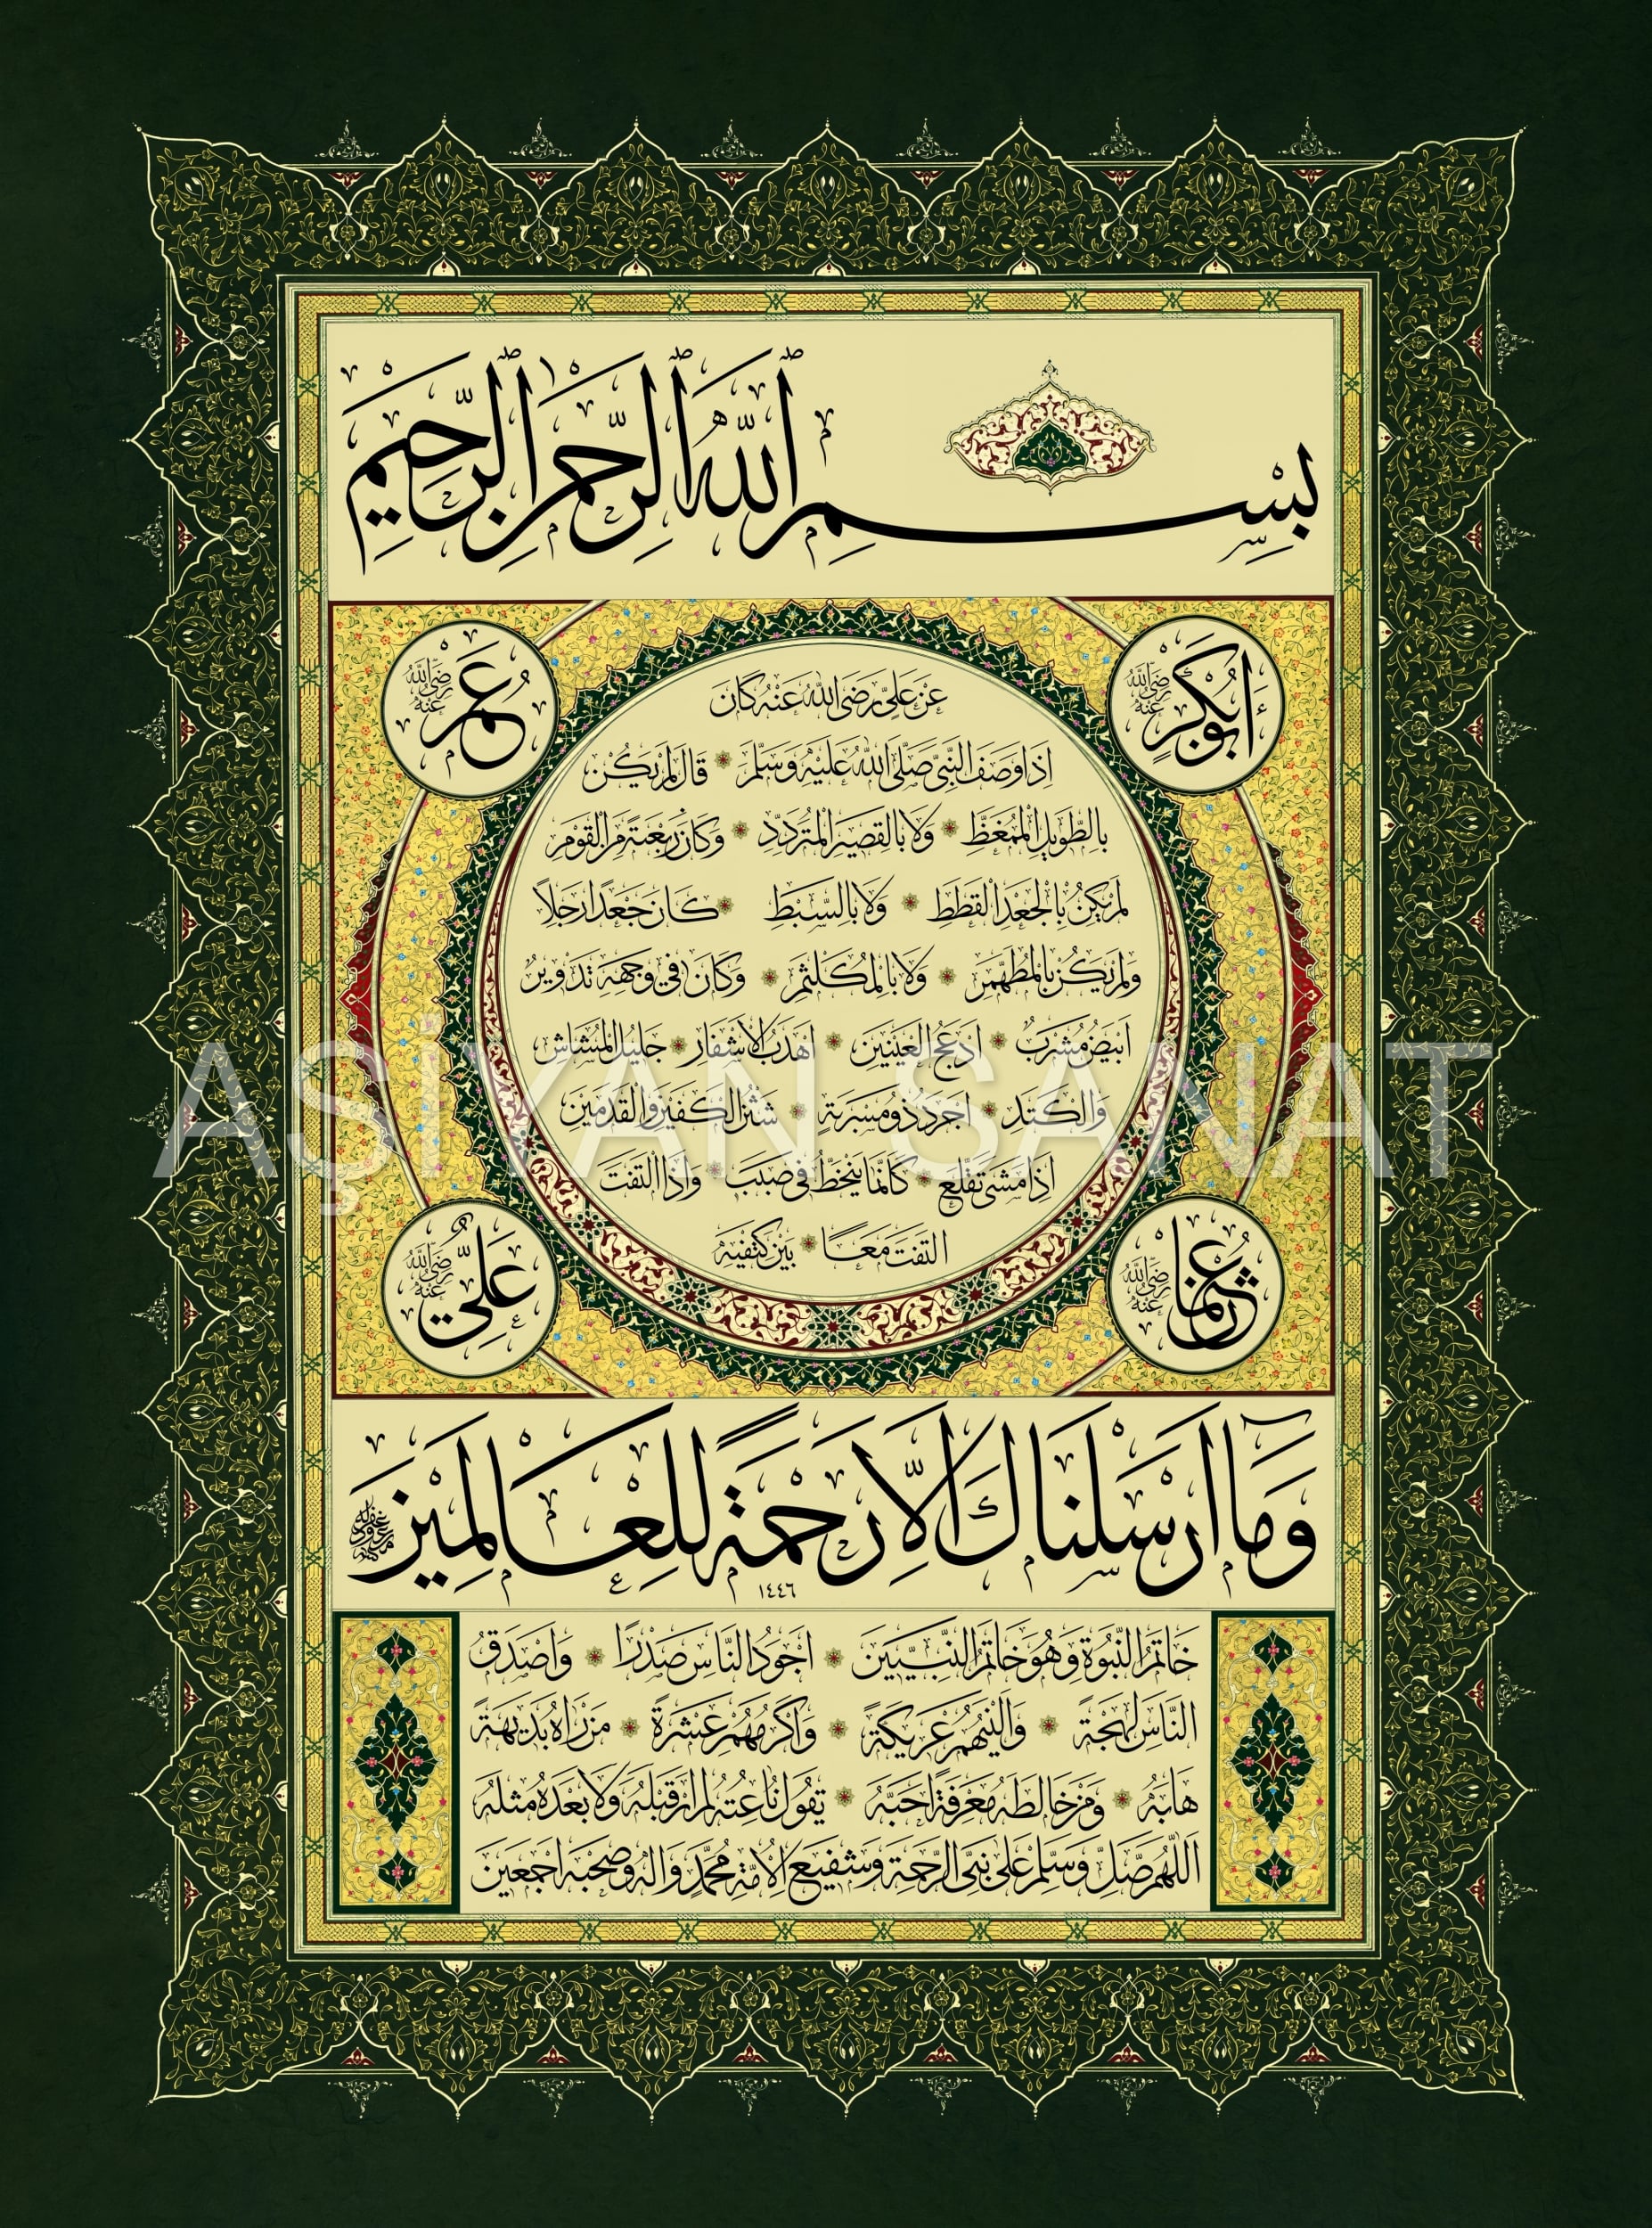 بِسْمِ اللهِ الرَّحْمٰنِ الرَّحِيمِ
اَبُو بَكْرٍ رَضِيَ اللهُ عَنْهُ
عُمَرُ رَضِيَ اللهُ عَنْهُ
عَنْ عَلِيٍّ رَضِيَ اللهُ عَنْهُ كَانَ
اِذَا وَصَفَ النَّبِيَّ صَلَّى اللهُ عَلَيْهِ وَسَلَّمَ قَالَ لَمْ يَكُنْ
بِالطَّوِيلِ الْمُمَّغِطِ وَلَا بِالْقَصِيرِ الْمُتَرَدِّدِ وَكَانَ رَبْعَةً مِنَ الْقَوْمِ
لَمْ يَكُنْ بِالْجَعْدِ الْقَطَطِ وَلَا بِالسَّبِطِ كَانَ جَعْدًا رَجِلًا
وَلَمْ يَكُنْ بِالْمُطَهَّمِ وَلَا بِالْمُكَلْثَمِ وَكَانَ فِي وَجْهِهِ تَدْوِيرٌ
اَبْيَضُ مُشْرَبٌ اَدْعَجُ الْعَيْنَيْنِ اَهْدَبُ الْاَشْفَارِ جَلِيلُ الْمُشَاشِ
وَالْكَتَدِ اَجْرَدُ ذُو مَسْرُبَةٍ شَثْنُ الْكَفَّيْنِ وَالْقَدَمَيْنِ
اِذَا مَشَى تَقَلَّعَ كَاَنَّمَا يَنْحَطُّ فِي صَبَبٍ وَاِذَا الْتَفَتَ
الْتَفَتَ مَعًا بَيْنَ كَتِفَيْهِ
عُثْمَانُ رَضِيَ اللهُ عَنْهُ
عَلِيٌّ رَضِيَ اللهُ عَنْهُ
وَمَا اَرْسَلْنَاكَ اِلَّا رَحْمَةً لِلْعَالَمِينَ
١٤٤٦
خَاتَمُ النُّبُوَّةِ وَهُوَ خَاتَمُ النَّبِيِّينَ اَجْوَدُ النَّاسِ صَدْرًا وَاَصْدَقُ
النَّاسِ لَهْجَةً وَاَلْيَنُهُمْ عَرِيكَةً وَاَكْرَمُهُمْ عِشْرَةً مَنْ رَاٰهُ بَدِيهَةً
هَابَهُ وَمَنْ خَالَطَهُ مَعْرِفَةً اَحَبَّهُ يَقُولُ نَاعِتُهُ لَمْ اَرَ قَبْلَهُ وَلَا بَعْدَهُ مِثْلَهُ
اَللّٰهُمَّ صَلِّ وَسَلِّمْ عَلَى نَبِيِّ الرَّحْمَةِ وَشَفِيعِ الْاُمَّةِ مُحَمَّدٍ وَاٰلِهِ وَصَحْبِهِ اَجْمَعِينَ
AŞİYAN SANAT